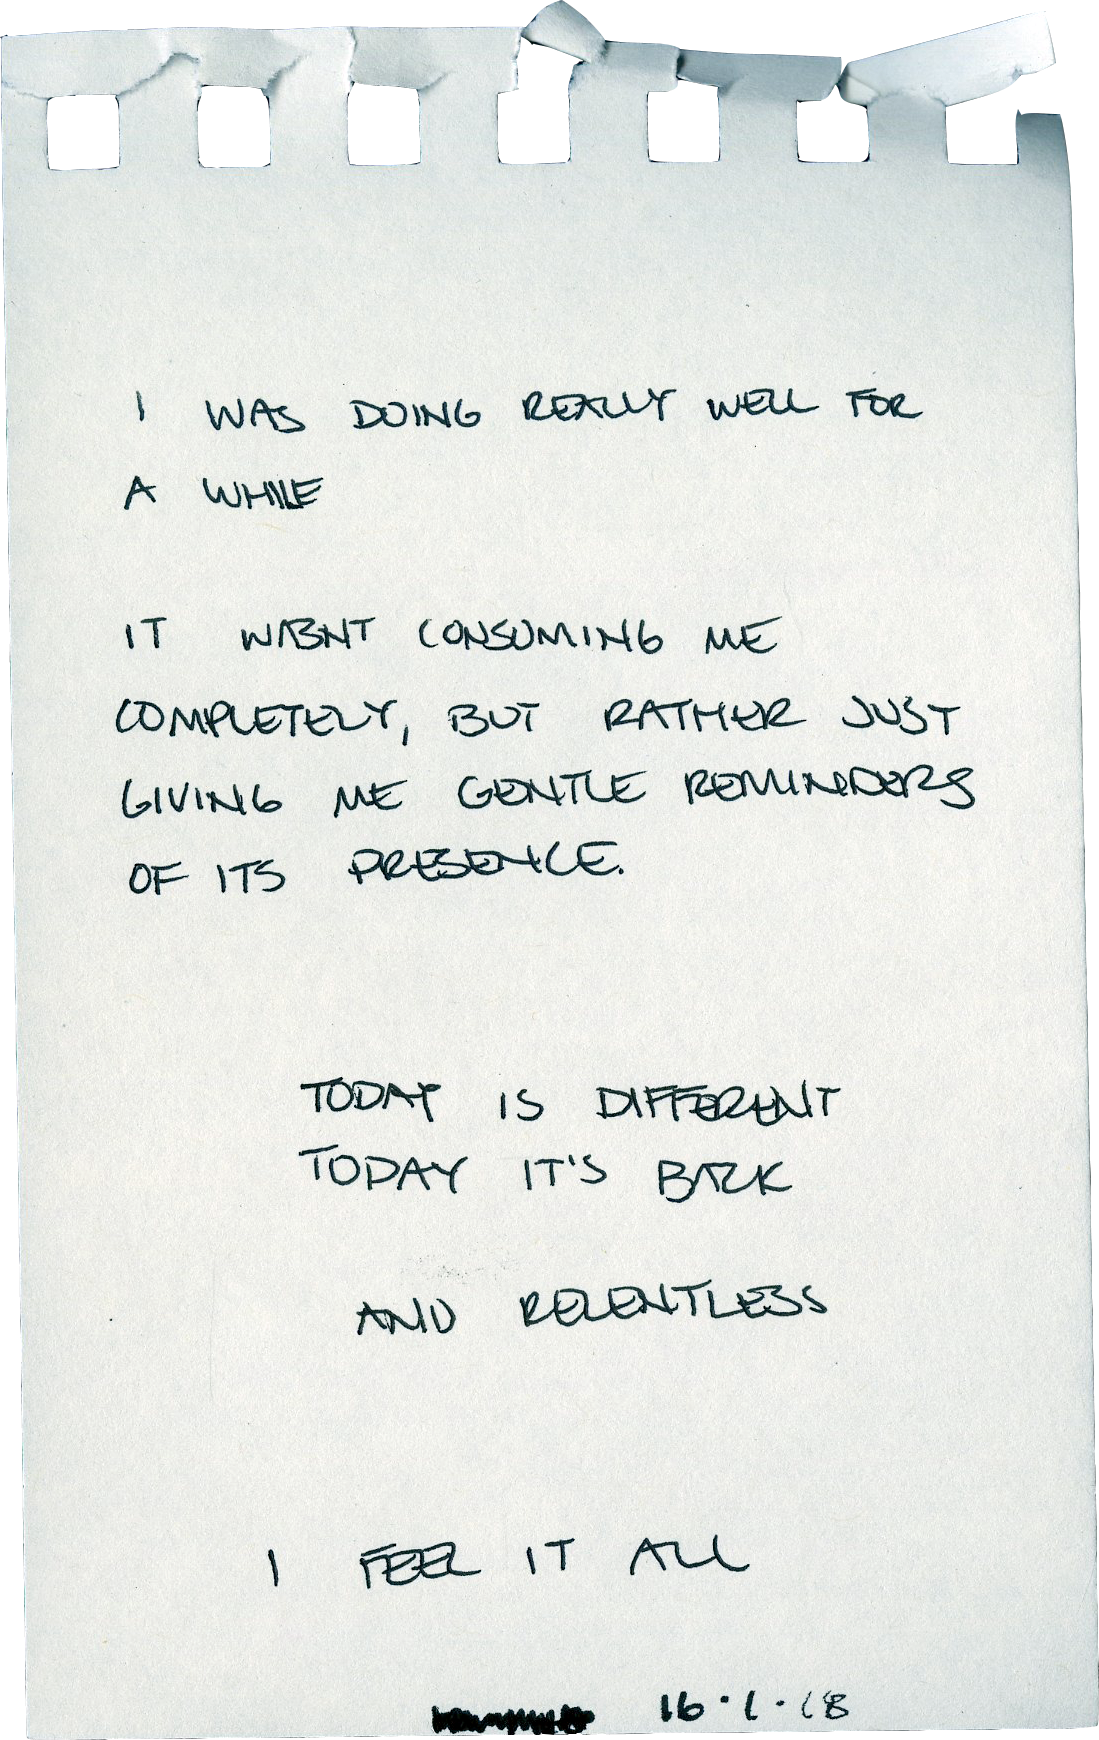 I WAS DOING REALLY WELL FOR
A WHILE
IT WASNT CONSUMING ME
COMPLETELY, BUT RATHER JUST
GIVING ME GENTLE REMINDERS
OF ITS PRESENCE.
TODAY IS DIFFERENT
TODAY IT'S BACK
AND RELENTLESS
I FEEL IT ALL
16·1·18